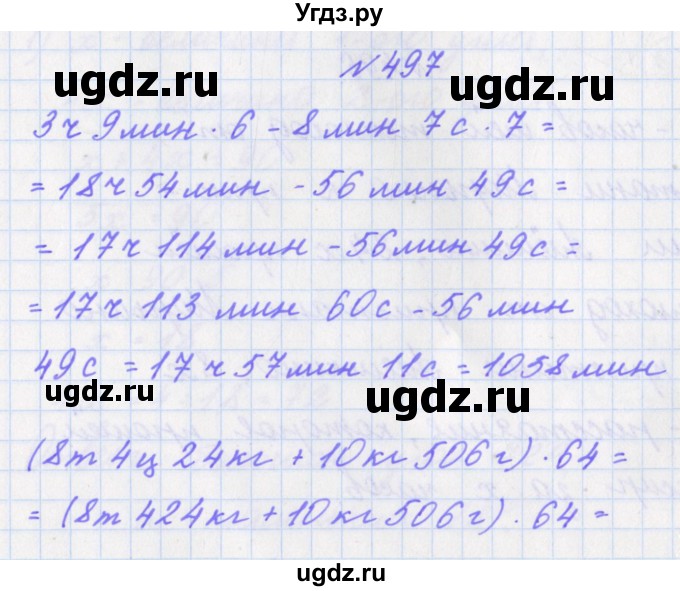 Угдз.ру
№ 497
ugdz.ru ugdz.ru
3 ч 9 мин · 6 - 8 мин 7 с · 7 =
= 18 ч 54 мин - 56 мин 49 с =
= 17 ч 114 мин - 56 мин 49 с =
= 17 ч 113 мин 60 с - 56 мин
49 с = 17 ч 57 мин 11 с = 1058 мин
ugdz.ru ugdz.ru
(8 т 4 ц 24 кг + 10 кг 506 г) · 64 =
= (8 т 424 кг + 10 кг 506 г) · 64 =
ugdz.ru